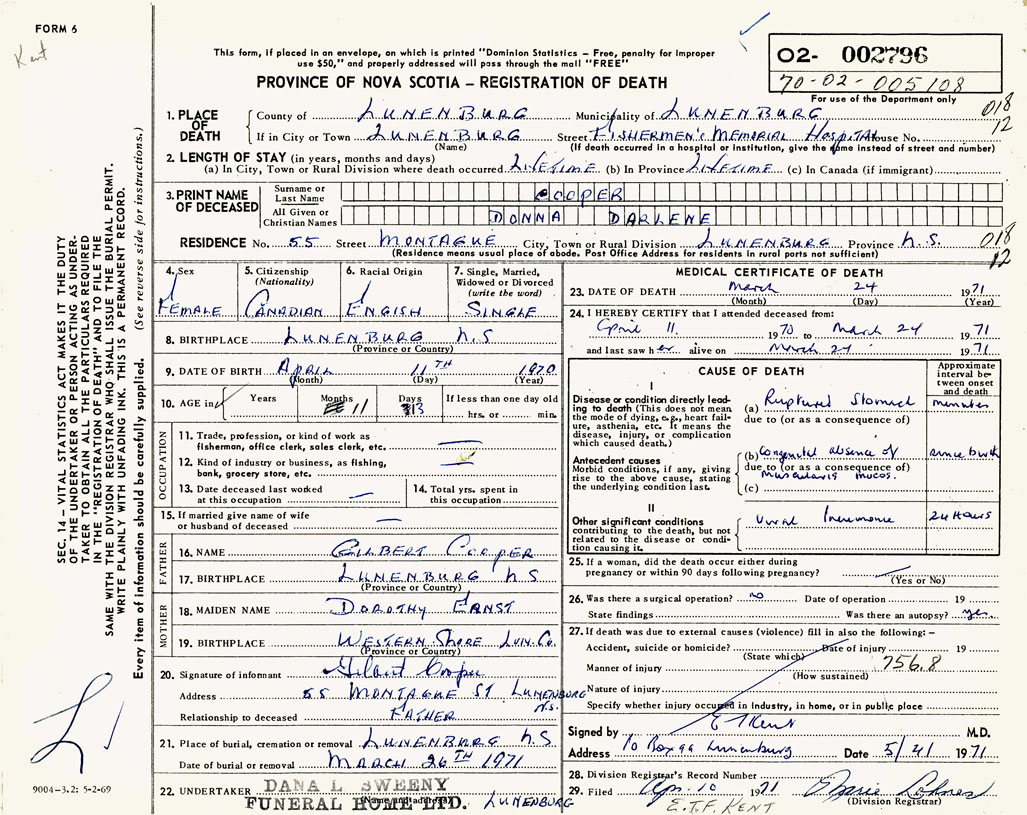 FORM 6
Kent
This form, if placed in an envelope, on which is printed "Dominion Statistics – Free, penalty for improper
use $50," and properly addressed will pass through the mail "FREE"
PROVINCE OF NOVA SCOTIA – REGISTRATION OF DEATH
O2- 002796
70-02-005108
For use of the Department only
018
12
1. PLACE OF DEATH
County of LUNENBURG Municipality of LUNENBURG
If in City or Town LUNENBURG Street FISHERMEN'S MEMORIAL HOSPITAL House No.
(Name) (If death occurred in a hospital or institution, give the name instead of street and number)
2. LENGTH OF STAY (in years, months and days)
(a) In City, Town or Rural Division where death occurred LIFETIME (b) In Province LIFETIME (c) In Canada (if immigrant)
3. PRINT NAME OF DECEASED
Surname or Last Name COOPER
All Given or Christian Names DONNA DARLENE
RESIDENCE No. 55 Street MONTAGUE City, Town or Rural Division LUNENBURG Province N.S.
(Residence means usual place of abode. Post Office Address for residents in rural ports not sufficient)
018
12
4. Sex
FEMALE
5. Citizenship
(Nationality)
CANADIAN
6. Racial Origin
ENGISH
7. Single, Married,
Widowed or Divorced
(write the word)
SINGLE
8. BIRTHPLACE LUNENBURG N.S
(Province or Country)
9. DATE OF BIRTH APRIL 11TH 1970
(Month) (Day) (Year)
10. AGE in
Years
Months 11
Days 13
If less than one day old
hrs. or min.
OCCUPATION
11. Trade, profession, or kind of work as
fisherman, office clerk, sales clerk, etc.
12. Kind of industry or business, as fishing,
bank, grocery store, etc.
13. Date deceased last worked
at this occupation
14. Total yrs. spent in
this occupation
15. If married give name of wife
or husband of deceased
FATHER
16. NAME GILBERT COOPER
17. BIRTHPLACE LUNENBURG N S
(Province or Country)
MOTHER
18. MAIDEN NAME DOROTHY ERNST
19. BIRTHPLACE WESTERN SHORE LUN. CO.
(Province or Country)
20. Signature of informant Gilbert Cooper
Address 55 MONTAGUE ST LUNENBURG
N.S.
Relationship to deceased FATHER
21. Place of burial, cremation or removal LUNENBURG N S
Date of burial or removal MARCH 26TH 1971
22. UNDERTAKER DANA L SWEENY
FUNERAL HOME LTD. LUNENBURG
(Name and address)
MEDICAL CERTIFICATE OF DEATH
23. DATE OF DEATH March 24 1971
(Month) (Day) (Year)
24. I HEREBY CERTIFY that I attended deceased from:
April 11 1970 to March 24 1971
and last saw her alive on March 24 1971
CAUSE OF DEATH
Approximate
interval be-
tween onset
and death
I
Disease or condition directly lead-
ing to death (This does not mean
the mode of dying, e.g., heart fail-
ure, asthenia, etc. It means the
disease, injury, or complication
which caused death.)
(a) Ruptured Stomach minutes
due to (or as a consequence of)
Antecedent causes
Morbid conditions, if any, giving
rise to the above cause, stating
the underlying condition last.
(b) Congenital absence of since birth
due to (or as a consequence of)
muscularis mucos.
(c)
II
Other significant conditions
contributing to the death, but not
related to the disease or condi-
tion causing it.
Viral Pneumonia 24 Hours
25. If a woman, did the death occur either during
pregnancy or within 90 days following pregnancy?
(Yes or No)
26. Was there a surgical operation? no Date of operation 19
State findings Was there an autopsy? yes.
27. If death was due to external causes (violence) fill in also the following: –
Accident, suicide or homicide? Date of injury 19
(State which)
Manner of injury 756.8
(How sustained)
Nature of injury
Specify whether injury occured in Industry, in home, or in public place
Signed by E T Kent M.D.
Address PO Box 99 Lunenburg Date 5/4/ 1971
28. Division Registrar's Record Number
29. Filed Apr. 10 1971
(Division Registrar)
E.T.F. KENT
SEC. 14 – VITAL STATISTICS ACT MAKES IT THE DUTY
OF THE UNDERTAKER OR PERSON ACTING AS UNDER-
TAKER TO OBTAIN ALL THE PARTICULARS REQUIRED
IN THE "REGISTRATION OF DEATH" AND TO FILE THE
SAME WITH THE DIVISION REGISTRAR WHO SHALL ISSUE THE BURIAL PERMIT.
WRITE PLAINLY WITH UNFADING INK. THIS IS A PERMANENT RECORD.
Every item of information should be carefully supplied. (See reverse side for instructions.)
9004-3.2: 5-2-69